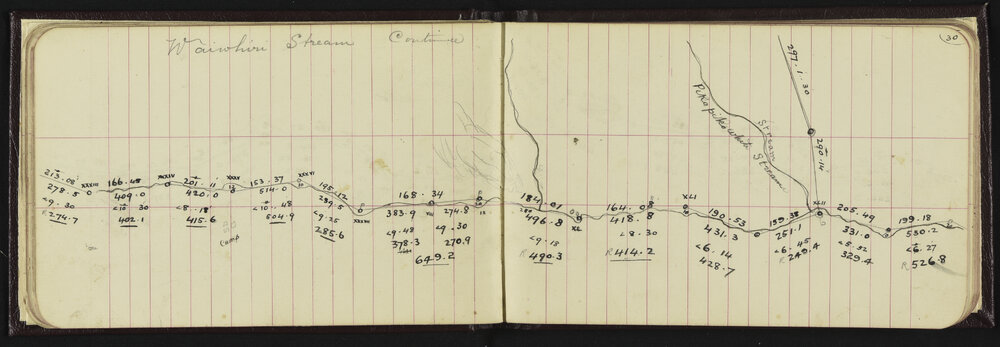 Waiwhiri Stream Continue
30
297.1.30
290.14
Pikopikowhiti Stream
Stream
213.08
278.5
<9.30
R 274.7
XXXIII
166.45
409.0
<10.30
402.1
XXXIV
201.11
420.0
<8.18
415.6
XXXV
Camp
153.37
514.0
<10.48
504.9
XXXVI
195.12
289.5
<9.25
285.6
XXXVII
168.34
383.9
<9.48
378.3
649.2
274.8
<9.30
270.9
184.01
496.8
<9.18
R 490.3
XL
164.08
418.8
<8.30
R 414.2
XLI
190.53
431.3
<6.14
428.7
159.38
251.1
<6.45
R 249.4
XLII
205.49
331.0
<5.52
329.4
199.18
530.2
<6.27
R 526.8